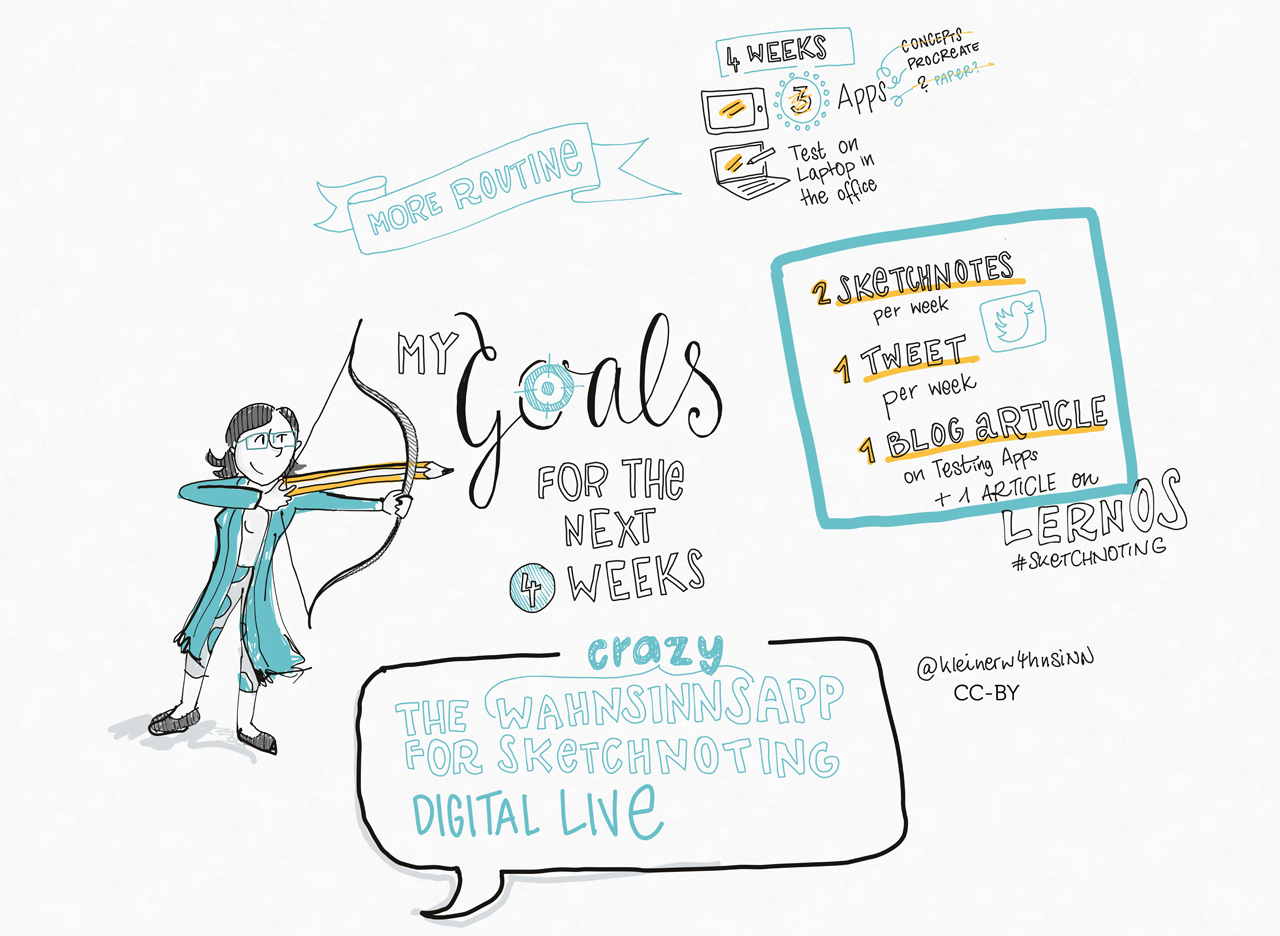 4 WEEKS
3 Apps
CONCEPTS
PROCREATE
? PAPER?
Test on
Laptop in
the office
MORE ROUTINE
2 SKETCHNOTES
per week
1 TWEET
per week
1 BLOG ARTICLE
on Testing Apps
+ 1 ARTICLE on
LERNOS
#SKETCHNOTING
MY Goals
FOR THE
NEXT
4 WEEKS
crazy
THE WAHNSINNSAPP
FOR SKETCHNOTING
DIGITAL LIVE
@kleinerw4hnsinn
CC-BY